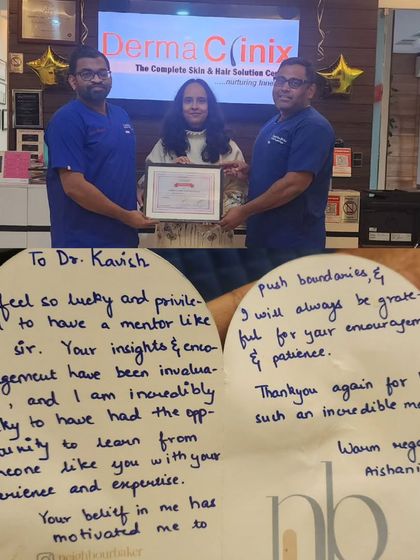 Derma Clinix
The Complete Skin & Hair Solution Cen
.....nurturing Inne
To Dr. Kavish
feel so lucky and privile-
to have a mentor like
sir. Your insights & enco-
agement have been invalua-
, and I am incredibly
ky to have had the opp-
unity to learn from
eone like you with your
erience and expertise.
Your belief in me has
motivated me to
neighbourbaker
push boundaries, &
I will always be grat-
ful for your encouragem
& patience.
Thankyou again for
such an incredible me
Warm rega
Aishani
nb